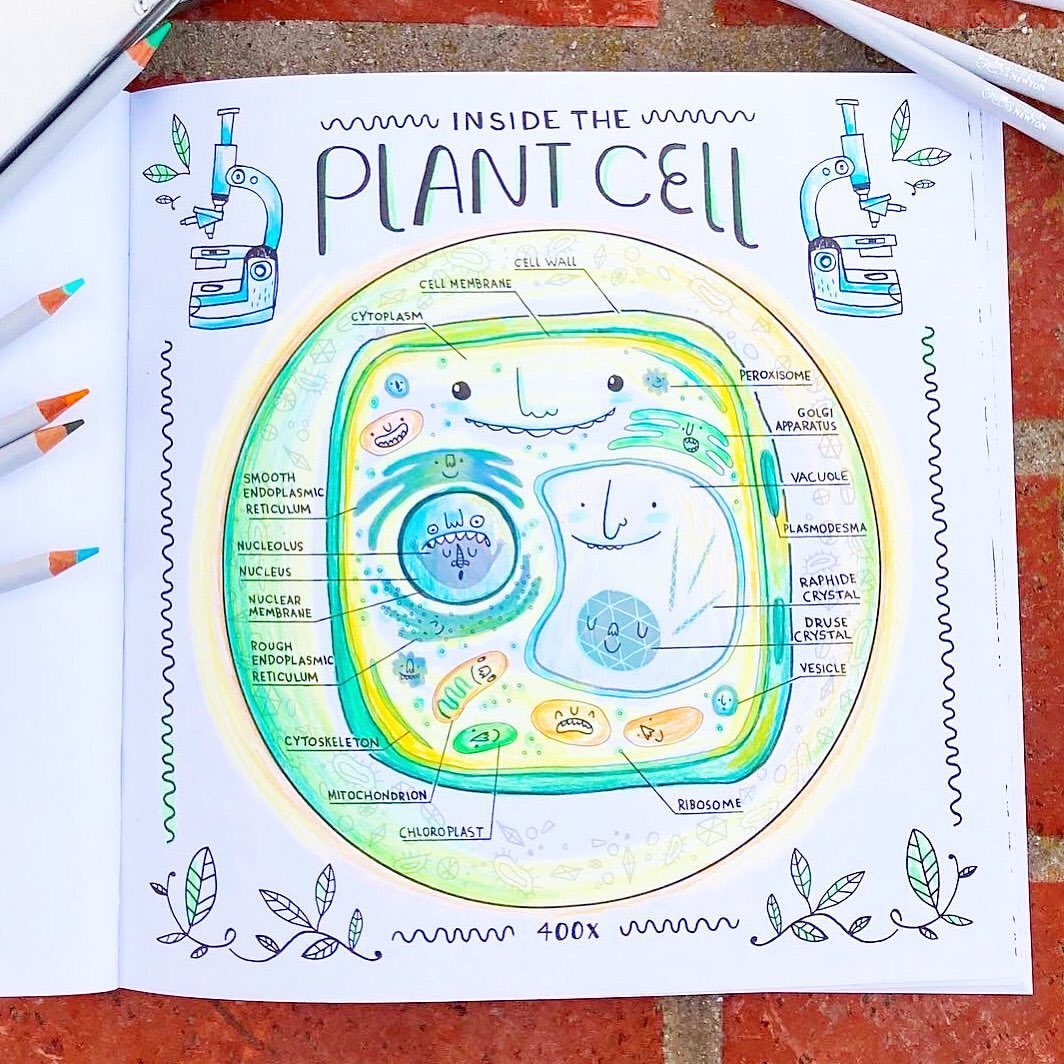 INSIDE THE
PLANT CELL
CELL WALL
CELL MEMBRANE
CYTOPLASM
PEROXISOME
GOLGI
APPARATUS
VACUOLE
PLASMODESMA
RAPHIDE
CRYSTAL
DRUSE
CRYSTAL
VESICLE
SMOOTH
ENDOPLASMIC
RETICULUM
NUCLEOLUS
NUCLEUS
NUCLEAR
MEMBRANE
ROUGH
ENDOPLASMIC
RETICULUM
CYTOSKELETON
MITOCHONDRION
CHLOROPLAST
RIBOSOME
400X
NEWTON
NEWTON